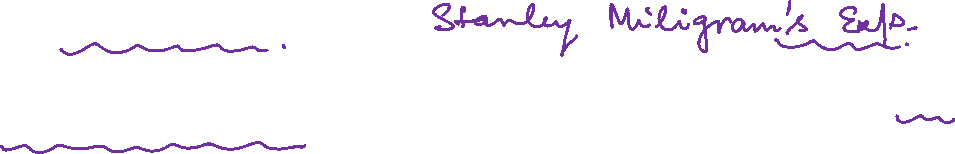 Stanley Miligram's Exp.